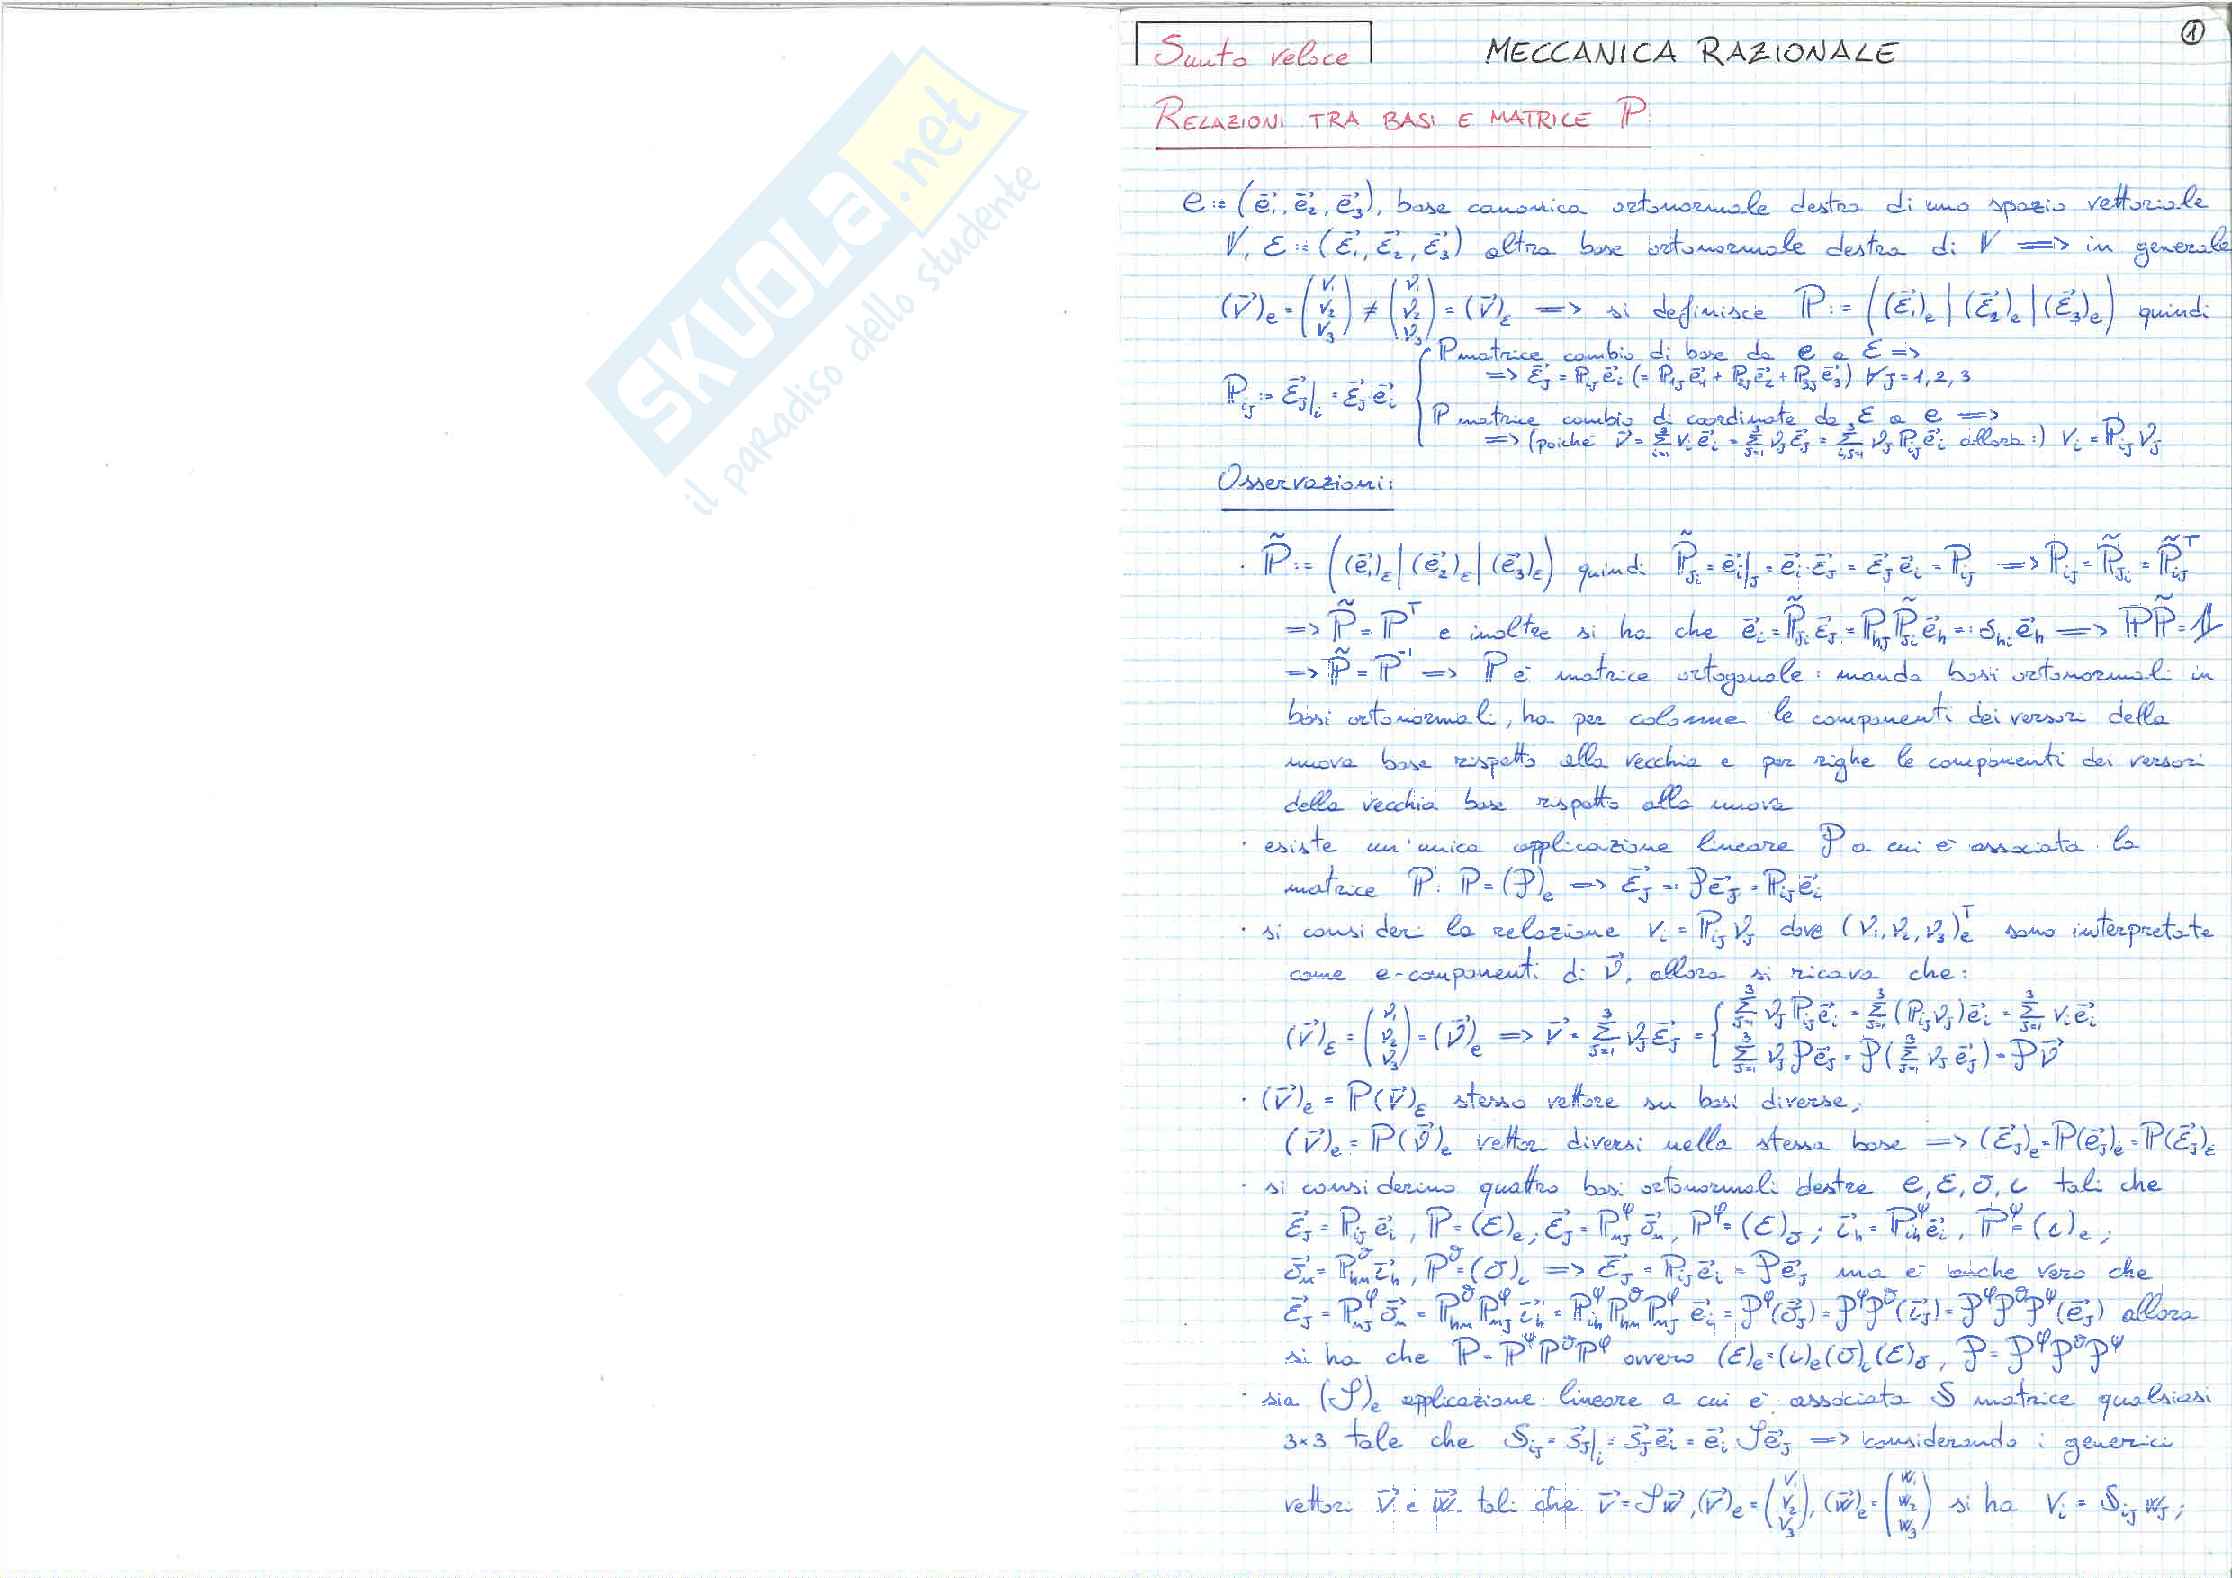 SKUOLA.net
il paradiso dello studente
1
Sunto veloce
MECCANICA RAZIONALE
RELAZIONI TRA BASI E MATRICE ℙ:
e := (e⃗₁, e⃗₂, e⃗₃), base canonica ortonormale destra di uno spazio vettoriale
V, ε := (ε⃗₁, ε⃗₂, ε⃗₃) altra base ortonormale destra di V => in generale
(v⃗)ₑ = (v₁ v₂ v₃) ≠ (𝓥₁ 𝓥₂ 𝓥₃) = (v⃗)_ε => si definisce ℙ := ((ε⃗₁)ₑ | (ε⃗₂)ₑ | (ε⃗₃)ₑ) quindi
ℙ matrice cambio di base da e a ε =>
=> ε⃗_J = ℙ_iJ e⃗_i (= ℙ_1J e⃗₁ + ℙ_2J e⃗₂ + ℙ_3J e⃗₃) ∀ J = 1, 2, 3
ℙ_iJ := ε⃗_J|_i = ε⃗_J e⃗_i
ℙ matrice cambio di coordinate da ε a e =>
=> (poiché v⃗ = Σ_{i=1}^3 v_i e⃗_i = Σ_{J=1}^3 𝓥_J ε⃗_J = Σ_{i,J=1}^3 𝓥_J ℙ_iJ e⃗_i allora:) v_i = ℙ_iJ 𝓥_J
Osservazioni:
· ℙ̃ := ((e⃗₁)_ε | (e⃗₂)_ε | (e⃗₃)_ε) quindi ℙ̃_Ji = e⃗_i|_J = e⃗_i · ε⃗_J = ε⃗_J e⃗_i = ℙ_iJ => ℙ_iJ = ℙ̃_Ji = ℙ̃_iJ^T
=> ℙ̃ = ℙ^T e inoltre si ha che e⃗_i = ℙ̃_Ji ε⃗_J = ℙ_hJ ℙ̃_Ji e⃗_h =: δ_hi e⃗_h => ℙℙ̃ = 𝟙
=> ℙ̃ = ℙ^-1 => ℙ è matrice ortogonale: manda basi ortonormali in
basi ortonormali, ha per colonne le componenti dei versori della
nuova base rispetto alla vecchia e per righe le componenti dei versori
della vecchia base rispetto alla nuova
· esiste un'unica applicazione lineare 𝒫 a cui è associata la
matrice ℙ: ℙ = (𝒫)ₑ => ε⃗_J =: 𝒫e⃗_J = ℙ_iJ e⃗_i
· si consideri la relazione v_i = ℙ_iJ 𝓥_J dove (𝓥₁, 𝓥₂, 𝓥₃)ₑ^T sono interpretate
come e-componenti di 𝓥⃗, allora si ricava che:
(v⃗)_ε = (𝓥₁ 𝓥₂ 𝓥₃) = (𝓥⃗)ₑ => v⃗ = Σ_{J=1}^3 𝓥_J ε⃗_J = { Σ_{J=1}^3 𝓥_J ℙ_iJ e⃗_i = Σ_{J=1}^3 (ℙ_iJ 𝓥_J) e⃗_i = Σ_{J=1}^3 v_i e⃗_i
Σ_{J=1}^3 𝓥_J 𝒫e⃗_J = 𝒫(Σ_{J=1}^3 𝓥_J e⃗_J) = 𝒫𝓥⃗
· (v⃗)ₑ = ℙ(v⃗)_ε stesso vettore su basi diverse;
(v⃗)ₑ = ℙ(𝓥⃗)ₑ vettori diversi nella stessa base => (ε⃗_J)ₑ = ℙ(e⃗_J)ₑ = ℙ(ε⃗_J)_ε
· si considerino quattro basi ortonormali destre e, ε, σ, ι tali che
ε⃗_J = ℙ_iJ e⃗_i, ℙ = (ε)ₑ; ε⃗_J = ℙ^φ_nJ σ⃗_n, ℙ^φ = (ε)_σ; ι⃗_h = ℙ^ψ_ih e⃗_i, ℙ^ψ = (ι)ₑ;
σ⃗_n = ℙ^ϑ_hn ι⃗_h, ℙ^ϑ = (σ)_ι => ε⃗_J = ℙ_iJ e⃗_i = 𝒫e⃗_J ma è anche vero che
ε⃗_J = ℙ^φ_nJ σ⃗_n = ℙ^ϑ_hn ℙ^φ_nJ ι⃗_h = ℙ^ψ_ih ℙ^ϑ_hn ℙ^φ_nJ e⃗_i = 𝒫^φ(σ⃗_J) = 𝒫^φ𝒫^ϑ(ι⃗_J) = 𝒫^φ𝒫^ϑ𝒫^ψ(e⃗_J) allora
si ha che ℙ = ℙ^ψℙ^ϑℙ^φ ovvero (ε)ₑ = (ι)ₑ(σ)_ι(ε)_σ, 𝒫 = 𝒫^φ𝒫^ϑ𝒫^ψ
· sia (𝒮)ₑ applicazione lineare a cui è associata 𝕊 matrice qualsiasi
3×3 tale che 𝕊_iJ = s⃗_J|_i = s⃗_J e⃗_i = e⃗_i 𝒮e⃗_J => considerando i generici
vettori v⃗ e w⃗ tali che v⃗ = 𝒮w⃗, (v⃗)ₑ = (v₁ v₂ v₃), (w⃗)ₑ = (w₁ w₂ w₃) si ha v_i = 𝕊_iJ w_J;